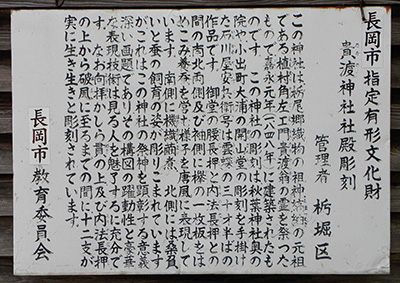 長岡市指定有形文化財
貴渡神社社殿彫刻
管理者 栃堀区
この神社は栃尾郷織物の祖神 紬の元祖
である植村角左エ門貴渡翁の霊を祭った
もので嘉永元年(一八四八)に建築されたも
のです。この神社の彫刻は秋葉神社奥の
院や小出町大浦の開山堂の彫刻を手掛け
た石川雲蝶の三十才半ばの
作品です。御堂の腰長押と内法長押との
間の南北両側及び袖側に欅の一枚板をは
めこみ養蚕を営む様子を唐風に表現して
います。南側に機織商煮、北側には桑負
いと蚕の飼育の姿が彫りこまれています
がこれは、この神社の祭神を顕彰する意義
深い画題でありその構図の躍動性と豪華
な表現技術は見る人を魅了するに充分で
す。なお向拝かしら貫の上及び内法長押
の上から破風に至るまでの間に十二支が
実に生き生きと彫刻されています。
長岡市教育委員会